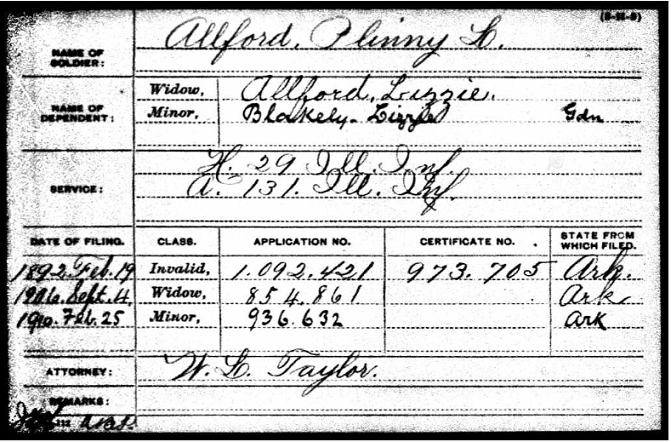 (3-M-3)
NAME OF SOLDIER: Allford, Plinny L.
NAME OF DEPENDENT:
Widow, Allford, Lizzie.
Minor, Blakely- Lizzie Gdn
SERVICE:
H. 29 Ill. Inf.
A. 131. Ill. Inf.
DATE OF FILING. CLASS. APPLICATION NO. CERTIFICATE NO. STATE FROM WHICH FILED.
1892. Feb. 19 Invalid, 1.092.421 973.705 Ark.
1906. Sept. 4. Widow, 854.861 Ark.
1910. Feb. 25 Minor, 936.632 Ark
ATTORNEY: W. L. Taylor.
REMARKS: